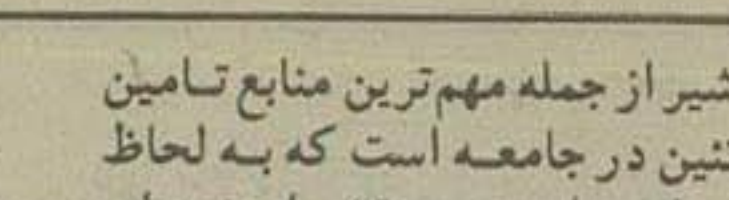 شیر از جمله مهم‌ترین منابع تـامین
در جامعـه است که بـه لحاظ